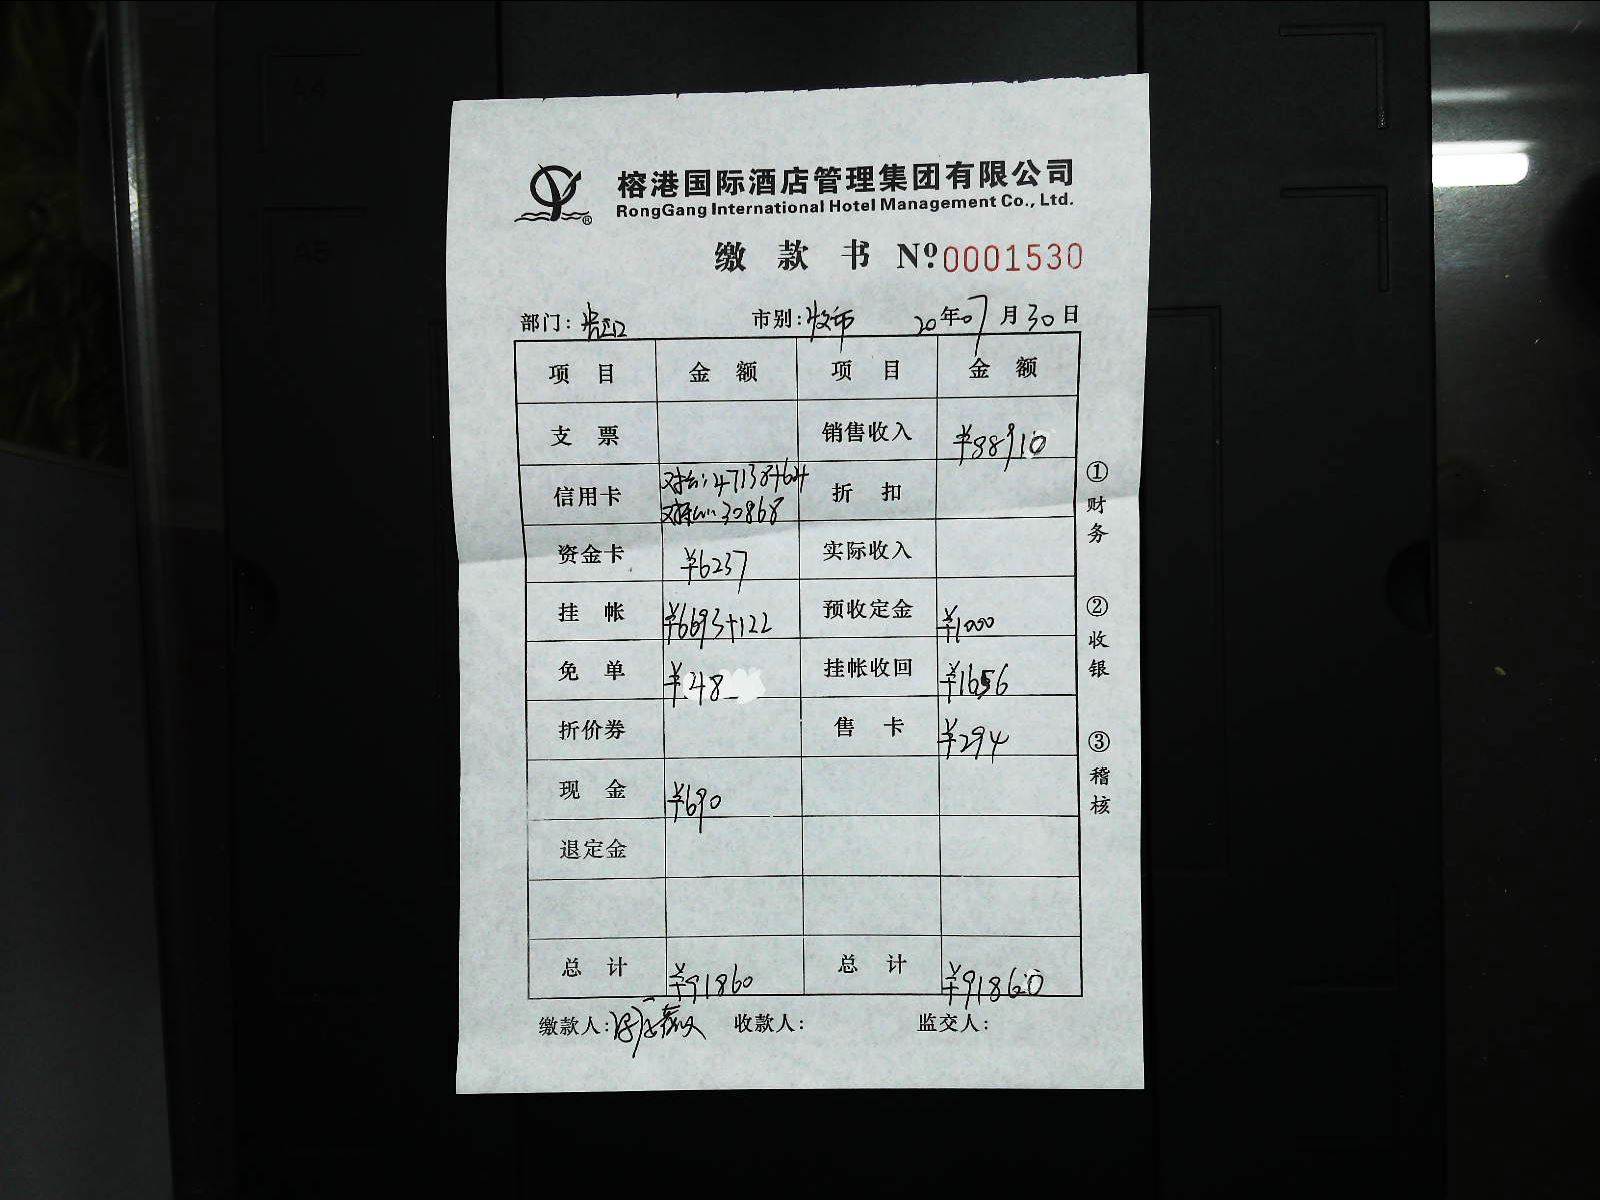 榕港国际酒店管理集团有限公司
RongGang International Hotel Management Co., Ltd.
缴款书 Nº 0001530
部门: 市别: 20年07月30日
项目 金额 项目 金额
支票 销售收入 ¥88910
信用卡 对公:47138+64 折扣
对私:30868
资金卡 ¥6237 实际收入
挂帐 ¥6693+122 预收定金 ¥1000
免单 ¥48 挂帐收回 ¥1656
折价券 售卡 ¥294
现金 ¥690
退定金
总计 ¥91860 总计 ¥91860
缴款人: 收款人: 监交人:
①财务 ②收银 ③稽核
A4
A5